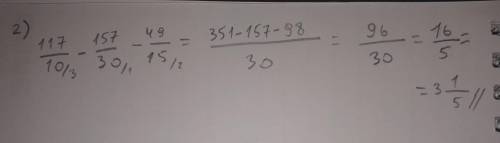 2) 117/10/3 - 157/30/1 - 49/15/2 = 351-157-98/30 = 96/30 = 16/5 =
= 3 1/5 //